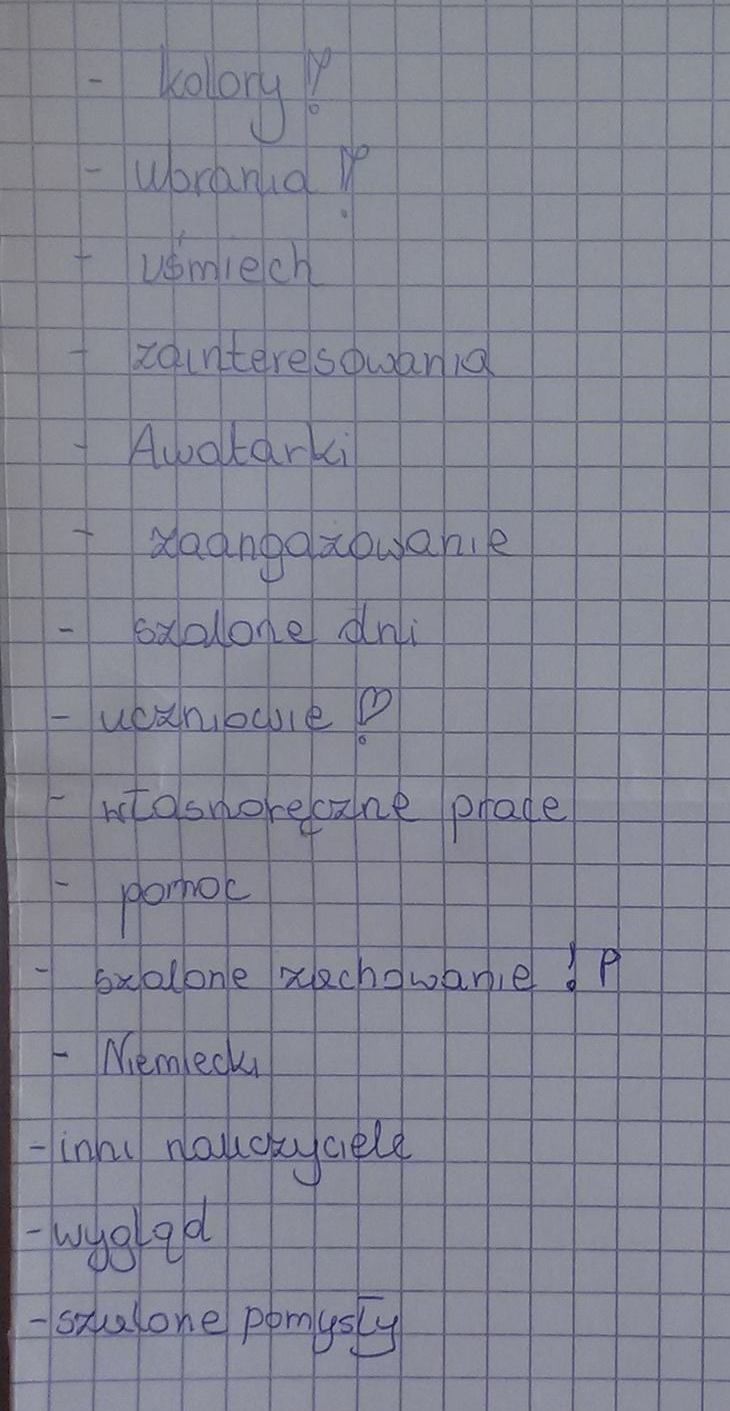 - kolory!
- ubrania!
- uśmiech
- zainteresowania
- Awatarki
- zaangażowanie
- szalone dni
- uczniowie!
- własnoręczne prace
- pomoc
- szalone zachowanie ! P
- Niemiecki
- inni nauczyciele
- wygląd
- szalone pomysły